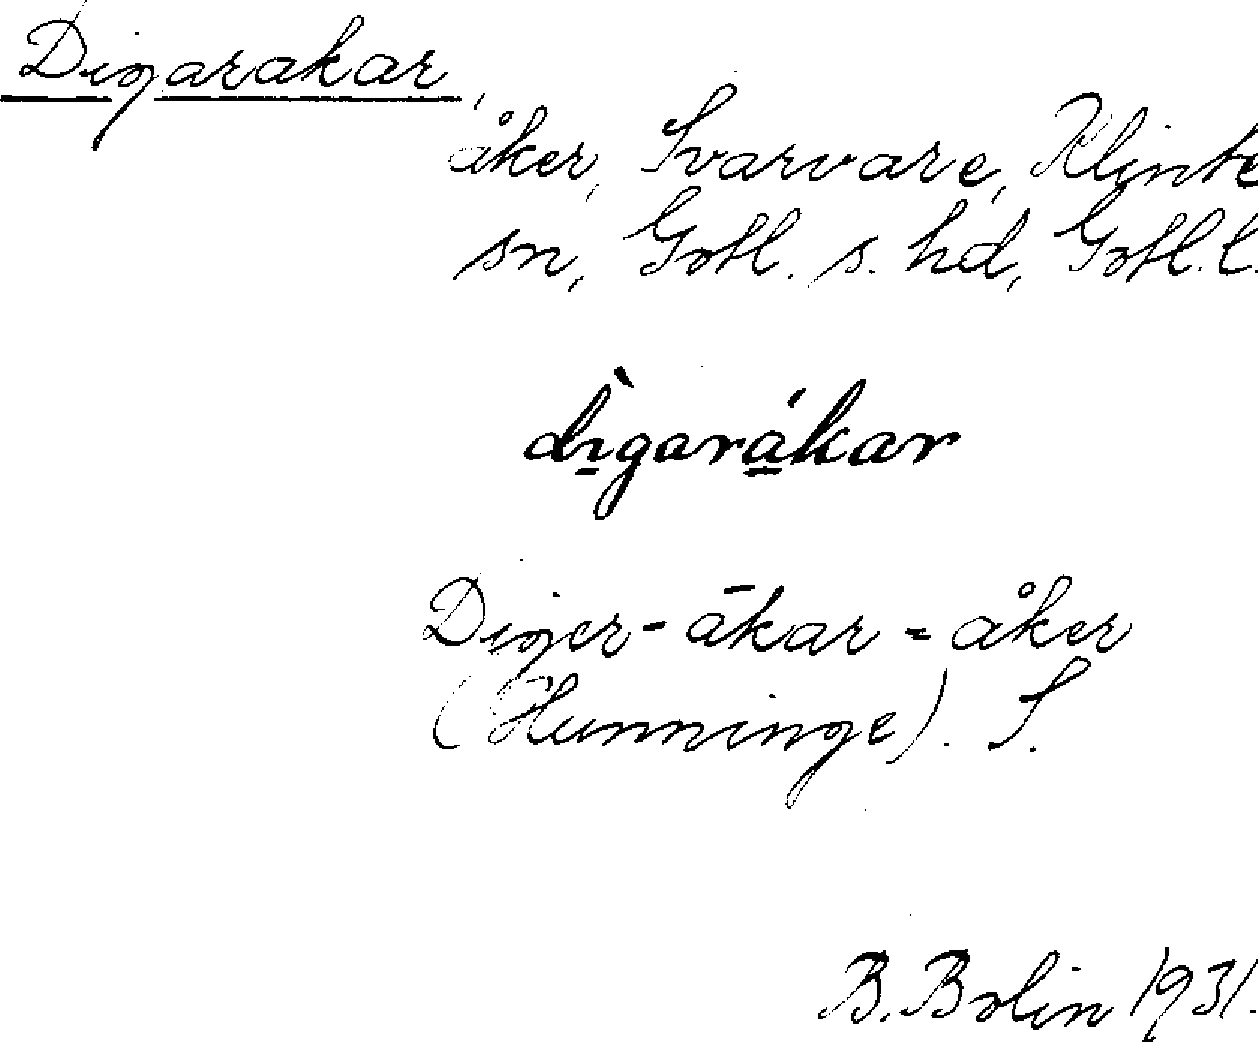 Digarakar,
åker, Svarvare, Klinte
sn, Gotl. s. hd, Gotl. l.
dìgarákar
Diger- ākar = åker
(Hunninge). S.
B. Bolin 1931.